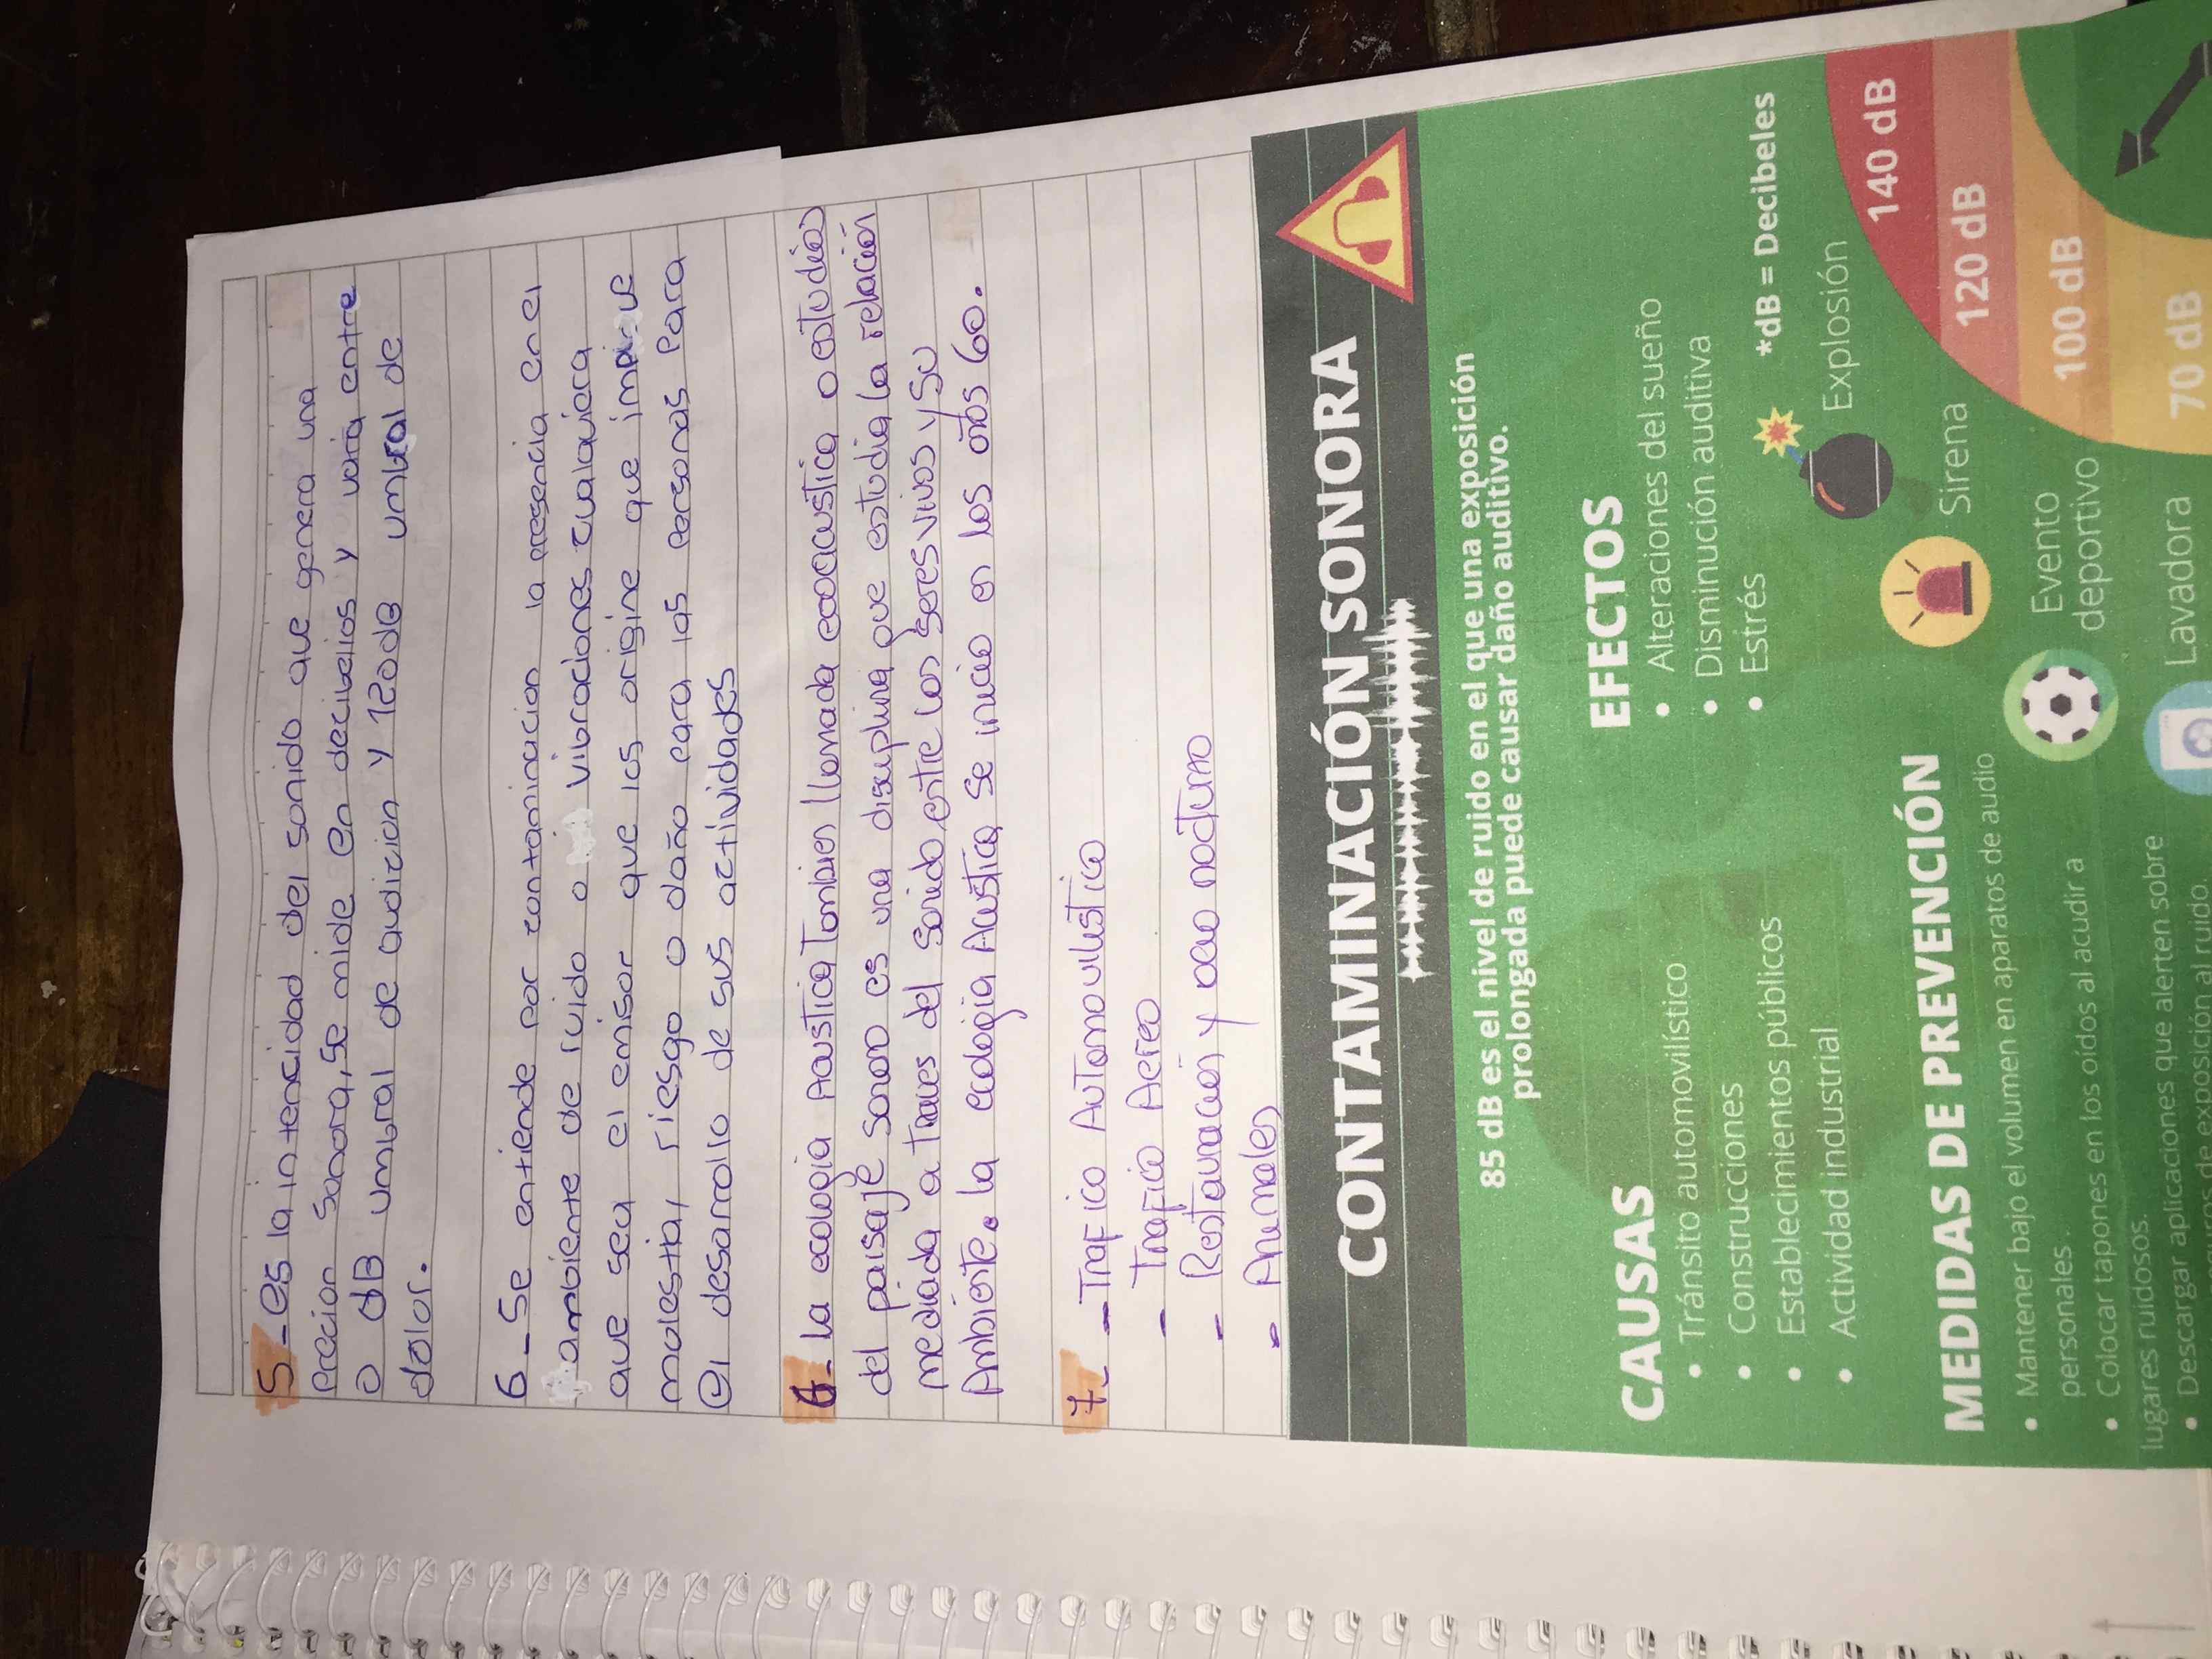 5_ es la intencidad del sonido que genera una
precion sonora, se mide en decivelios y varia entre
0 dB umbral de audicion y 120dB umbral de
dolor.
6_ Se entiende por contaminacion la presencia en el
ambiente de ruido o vibraciones cualquiera
que sea el emisor que los origine que implique
molestia, riesgo o daño para las personas para
el desarrollo de sus actividades
6- la ecologia Acustica Tambien llamada ecoacustica o estudios
del paisaje sonoro es una disciplina que estudia la relación
mediada a Traves del sonido entre los seres vivos y su
Ambiente. la ecologia Acustica se inicio en los años 60.
7- - Trafico Automovilistico
- Trafico Aereo
- Restauración y ocio nocturno
- Animales
CONTAMINACIÓN SONORA
85 dB es el nivel de ruido en el que una exposición
prolongada puede causar daño auditivo.
CAUSAS
• Tránsito automovilístico
• Construcciones
• Establecimientos públicos
• Actividad industrial
EFECTOS
• Alteraciones del sueño
• Disminución auditiva
• Estrés
*dB = Decibeles
Explosión
140 dB
Sirena
120 dB
Evento
deportivo
100 dB
Lavadora
70 dB
MEDIDAS DE PREVENCIÓN
• Mantener bajo el volumen en aparatos de audio
personales.
• Colocar tapones en los oídos al acudir a
lugares ruidosos.
• Descargar aplicaciones que alerten sobre
de exposición al ruido.